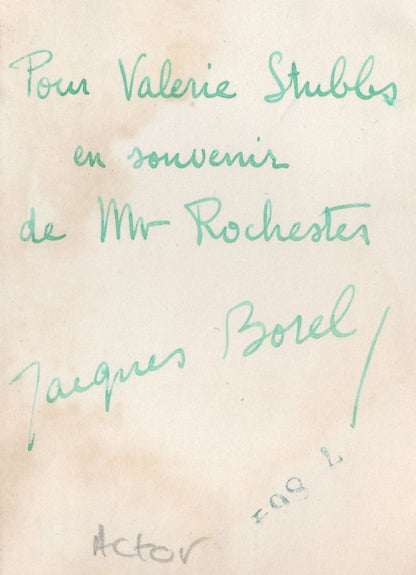 Pour Valerie Stubbs
en souvenir
de Mr Rochester
Jacques Borel
Actor